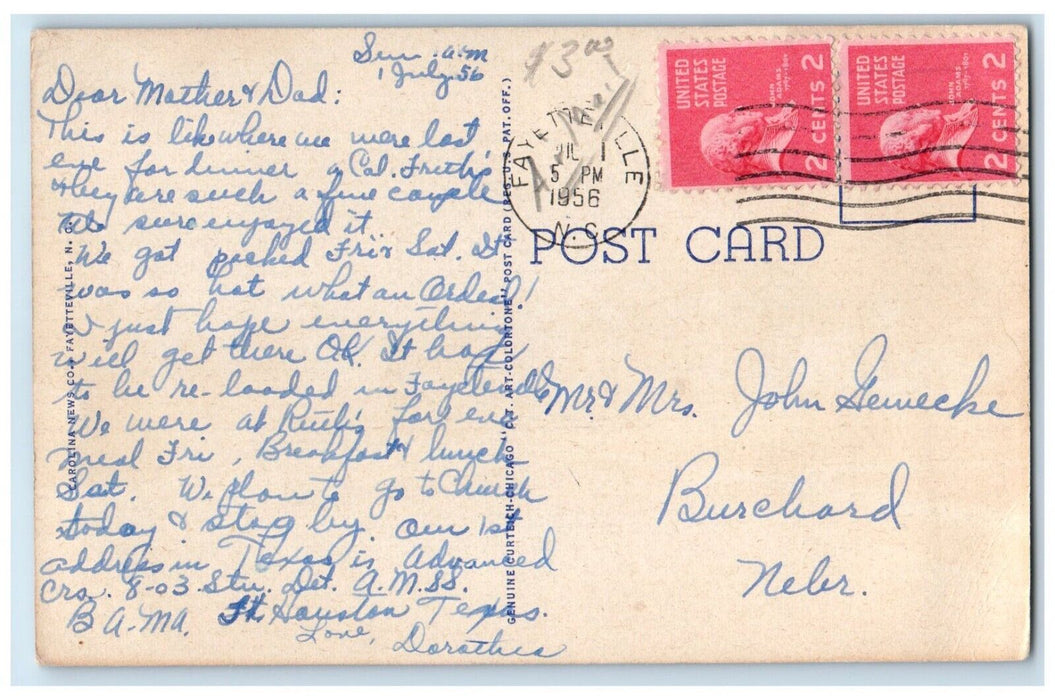 Sun. a.m
1 July 56
Dear Mother & Dad:
This is like where we were last
eve for dinner Col.
They're such a fine couple
sure enjoyed it.
We got packed Fri & Sat. It
was so hot what an Ordeal!
I just hope everything
will get there OK. It has
to be re-loaded in Fayetteville
We were at Ruth's for eve
meal Fri, Breakfast & lunch
Sat. We plan to go to Church
today & stag by. Our 1st
address in Texas is Advanced
Crs. 8-03. Stu. Det. A.M.SS.
B A.MA. Ft. Houston Texas.
Love,
Dorothea
CAROLINA NEWS CO., FAYETTEVILLE, N. C.
GENUINE CURTEICH-CHICAGO "C.T. ART-COLORTONE" POST CARD (REG. U.S. PAT. OFF.)
$3.00
FAYETTEVILLE
JUL 1
5 PM
1956
N.C.
UNITED STATES POSTAGE
JOHN ADAMS
1797-1801
2 CENTS 2
UNITED STATES POSTAGE
JOHN ADAMS
1797-1801
2 CENTS 2
POST CARD
Mr & Mrs. John Gewecke
Burchard
Nebr.